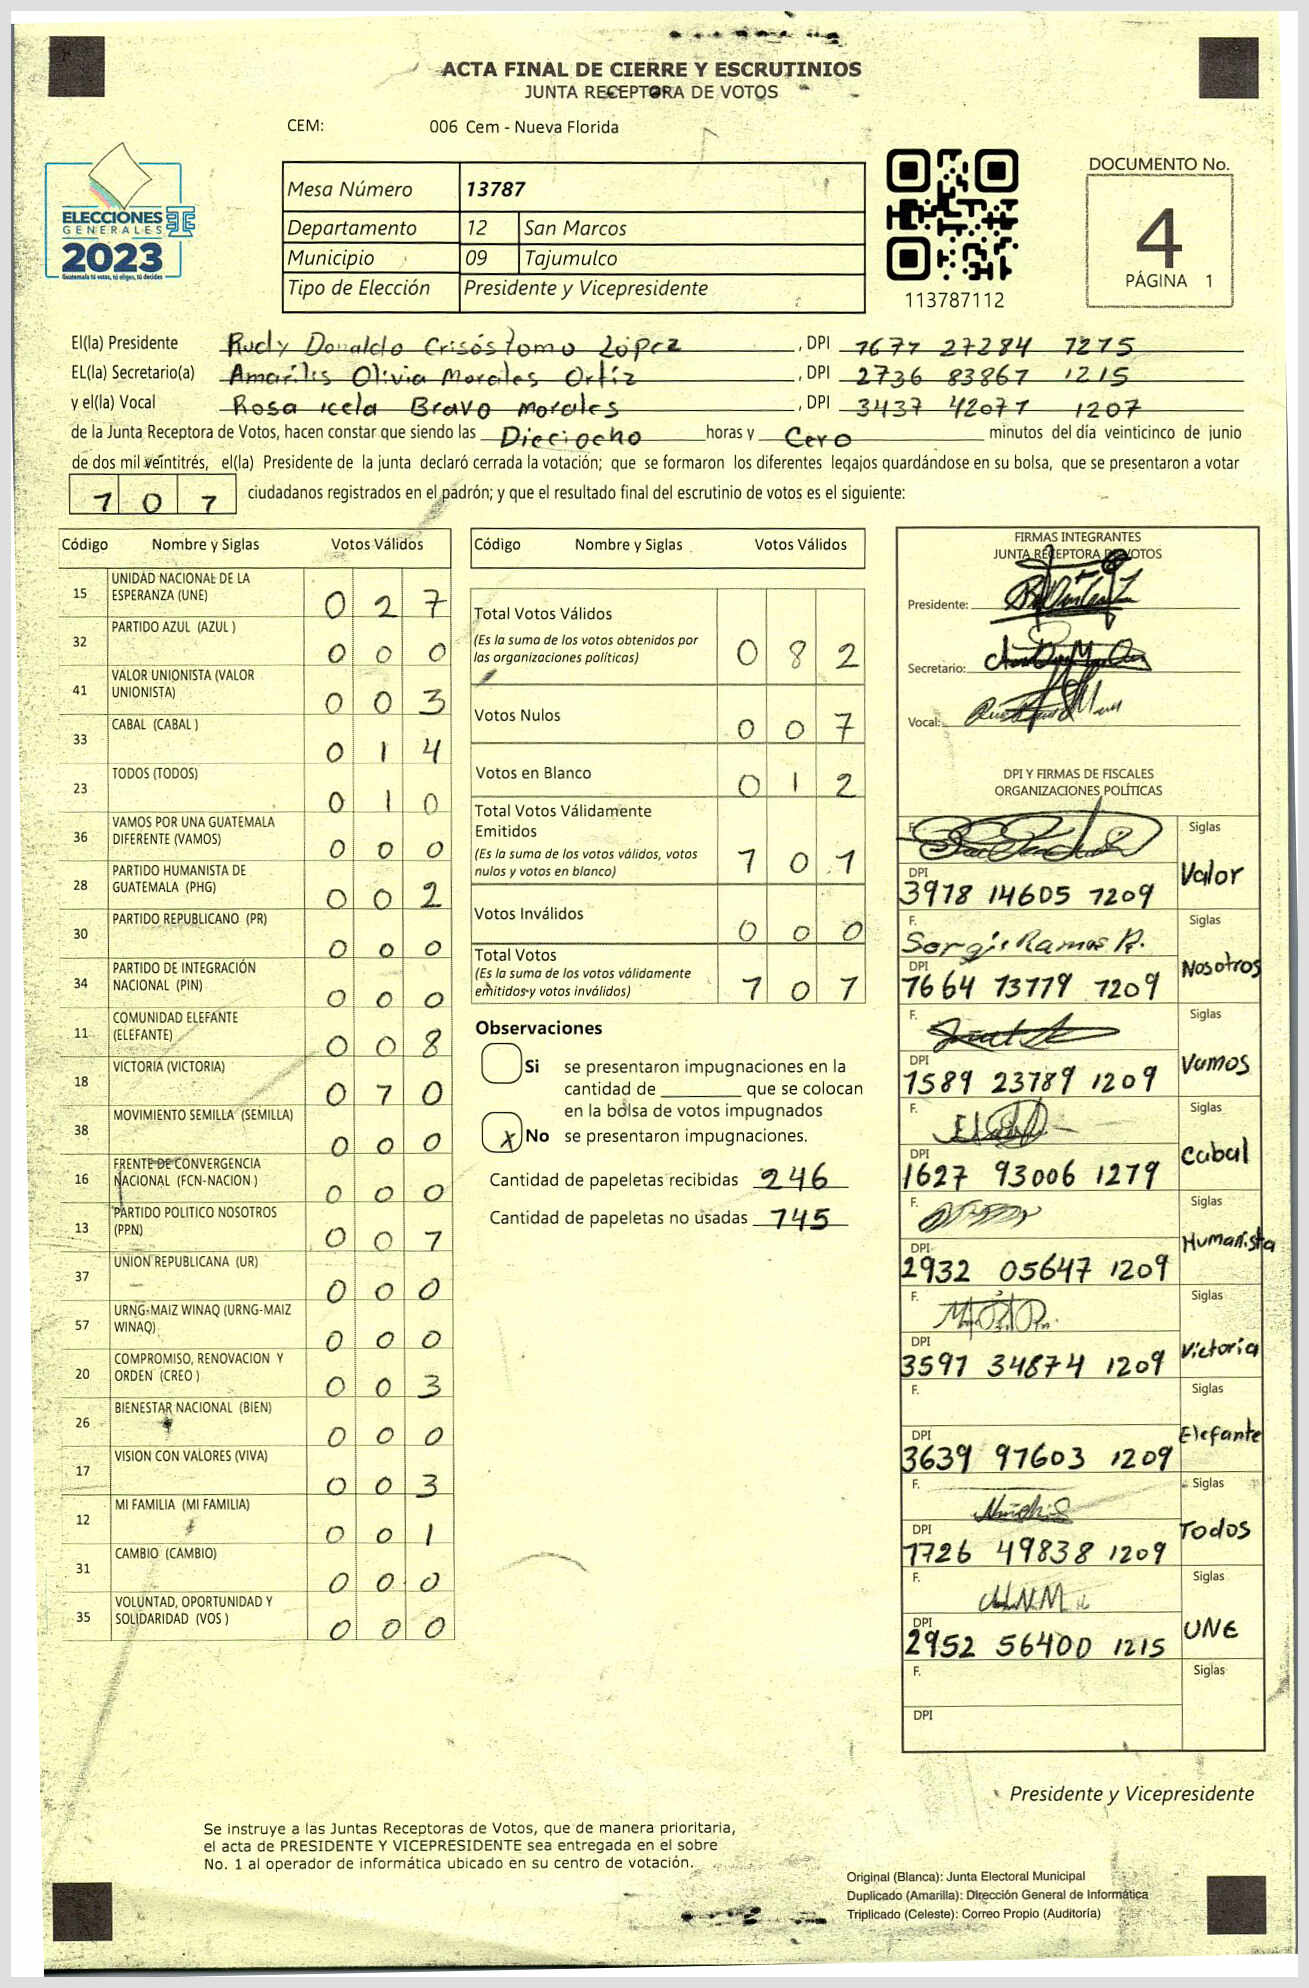 ACTA FINAL DE CIERRE Y ESCRUTINIOS
JUNTA RECEPTORA DE VOTOS
CEM: 006 Cem - Nueva Florida
ELECCIONES
GENERALES
2023
Guatemala tú votas, tú eliges, tú decides
Mesa Número 13787
Departamento 12 San Marcos
Municipio 09 Tajumulco
Tipo de Elección Presidente y Vicepresidente
113787112
DOCUMENTO No.
4
PÁGINA 1
El(la) Presidente Rudy Donaldo Crisóstomo López, DPI 1677 27284 1215
EL(la) Secretario(a) Amarilis Olivia Morales Ortíz, DPI 2736 83867 1215
y el(la) Vocal Rosa icela Bravo morales, DPI 3437 42071 1207
de la Junta Receptora de Votos, hacen constar que siendo las Dieciocho horas y Cero minutos del día veinticinco de junio
de dos mil veintitrés, el(la) Presidente de la junta declaró cerrada la votación; que se formaron los diferentes legajos guardándose en su bolsa, que se presentaron a votar
101 ciudadanos registrados en el padrón; y que el resultado final del escrutinio de votos es el siguiente:
Código Nombre y Siglas Votos Válidos
15 UNIDAD NACIONAL DE LA
ESPERANZA (UNE) 0 2 7
32 PARTIDO AZUL (AZUL ) 0 0 0
41 VALOR UNIONISTA (VALOR
UNIONISTA) 0 0 3
33 CABAL (CABAL ) 0 1 4
23 TODOS (TODOS) 0 1 0
36 VAMOS POR UNA GUATEMALA
DIFERENTE (VAMOS) 0 0 0
28 PARTIDO HUMANISTA DE
GUATEMALA (PHG) 0 0 2
30 PARTIDO REPUBLICANO (PR) 0 0 0
34 PARTIDO DE INTEGRACIÓN
NACIONAL (PIN) 0 0 0
11 COMUNIDAD ELEFANTE
(ELEFANTE) 0 0 8
18 VICTORIA (VICTORIA) 0 1 0
38 MOVIMIENTO SEMILLA (SEMILLA) 0 0 0
16 FRENTE DE CONVERGENCIA
NACIONAL (FCN-NACION ) 0 0 0
13 PARTIDO POLITICO NOSOTROS
(PPN) 0 0 1
37 UNION REPUBLICANA (UR) 0 0 0
57 URNG-MAIZ WINAQ (URNG-MAIZ
WINAQ) 0 0 0
20 COMPROMISO, RENOVACION Y
ORDEN (CREO ) 0 0 3
26 BIENESTAR NACIONAL (BIEN) 0 0 0
17 VISION CON VALORES (VIVA) 0 0 3
12 MI FAMILIA (MI FAMILIA) 0 0 1
31 CAMBIO (CAMBIO) 0 0 0
35 VOLUNTAD, OPORTUNIDAD Y
SOLIDARIDAD (VOS ) 0 0 0
Código Nombre y Siglas Votos Válidos
Total Votos Válidos
(Es la suma de los votos obtenidos por
las organizaciones políticas) 0 8 2
Votos Nulos 0 0 7
Votos en Blanco 0 1 2
Total Votos Válidamente
Emitidos
(Es la suma de los votos válidos, votos
nulos y votos en blanco) 1 0 1
Votos Inválidos 0 0 0
Total Votos
(Es la suma de los votos válidamente
emitidos y votos inválidos) 1 0 1
Observaciones
Si se presentaron impugnaciones en la
cantidad de ________ que se colocan
en la bolsa de votos impugnados
X No se presentaron impugnaciones.
Cantidad de papeletas recibidas 246
Cantidad de papeletas no usadas 145
FIRMAS INTEGRANTES
JUNTA RECEPTORA DE VOTOS
Presidente:
Secretario:
Vocal:
DPI Y FIRMAS DE FISCALES
ORGANIZACIONES POLÍTICAS
F. Siglas
DPI Valor
3918 14605 1209
F. Sergio Ramos R. Siglas
DPI Nosotros
1664 13779 1209
F. Siglas
DPI Vamos
1589 23789 1209
F. Siglas
DPI Cabal
1627 93006 1219
F. Siglas
DPI Humanista
2932 05647 1209
F. Siglas
DPI Victoria
3591 34874 1209
F. Siglas
DPI Elefante
3639 97603 1209
F. Siglas
DPI Todos
1726 49838 1209
F. Siglas
DPI UNE
2952 56400 1215
F. Siglas
DPI
Presidente y Vicepresidente
Se instruye a las Juntas Receptoras de Votos, que de manera prioritaria,
el acta de PRESIDENTE Y VICEPRESIDENTE sea entregada en el sobre
No. 1 al operador de informática ubicado en su centro de votación.
Original (Blanca): Junta Electoral Municipal
Duplicado (Amarilla): Dirección General de Informática
Triplicado (Celeste): Correo Propio (Auditoría)